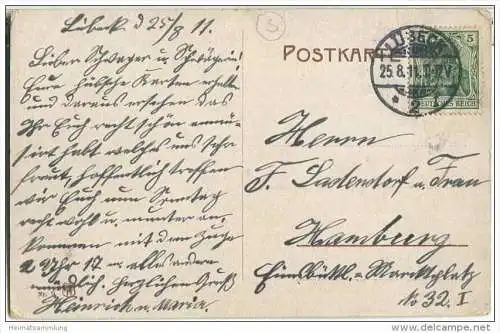 Lübeck d 25/8 11.
Lieber Schwager u Schwägerin!
Eure hübsche Karten erhalten
und daraus ersehen das
Ihr Euch recht schön amü-
sirt habt welches uns sehr
freut, hoffentlich treffen
wir Euch zum Sonntag
recht wohl u. munter an,
kommen mit dem Zuge
2 Uhr 17 m. alles andere
mündlich. herzlichen Gruß
Heinrich u. Maria.
POSTKARTE
LÜBECK
25.8.11.
* 2
5
DEUTSCHES REICH
Herrn
F. Ladendorf u. Frau
Hamburg
Eimsbüttl. - Marktplatz
No 32. I
S
© Heimatsammlung.de